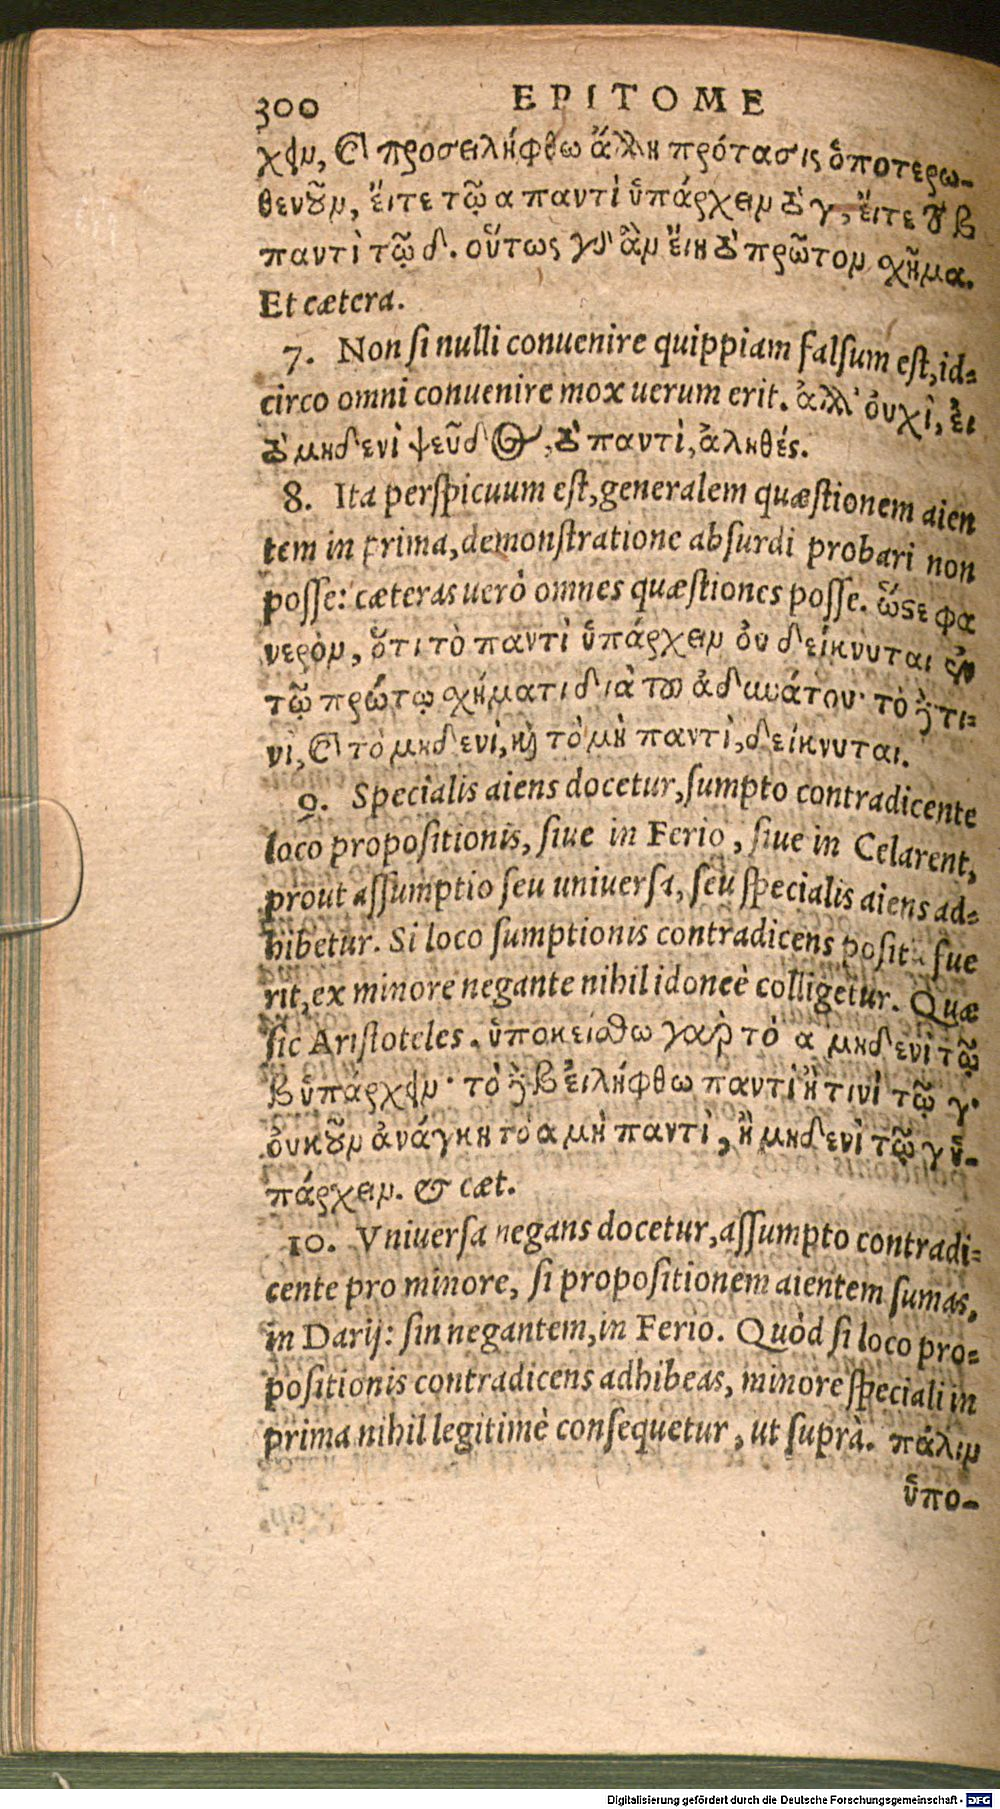 300 EPITOME
χειν, καὶ προσειλήφθω ἄλλη πρότασις ὁποτερω-
θενοῦν, ἔιτε τῷ α παντὶ ὑπάρχειν τὸ γ, ἔιτε τὸ β
παντὶ τῷ δ. οὕτως γὰρ ἂν ἔιη τὸ πρῶτον σχῆμα.
Et cætera.
7. Non si nulli conuenire quippiam falsum est, id=
circo omni conuenire mox uerum erit. ἀλλ' ὀυχὶ, ἐι
τὸ μηδενὶ ψεῦδος, τὸ παντὶ, ἀληθές.
8. Ita perspicuum est, generalem quæstionem aien
tem in prima, demonstratione absurdi probari non
posse: cæteras uerò omnes quæstiones posse. ὥστε φα
νερὸν, ὅτι τὸ παντὶ ὑπάρχειν ὀυ δείκνυται ἐν
τῷ πρώτῳ σχήματι διὰ τοῦ ἀδυνάτου· τὸ δὲ τι-
νὶ, καὶ τὸ μηδενὶ, καὶ τὸ μὴ παντὶ, δείκνυται.
9. Specialis aiens docetur, sumpto contradicente
loco propositionis, siue in Ferio, siue in Celarent,
prout assumptio seu uniuersa, seu specialis aiens ad=
hibetur. Si loco sumptionis contradicens posita fue
rit, ex minore negante nihil idoneè colligetur. Quæ
sic Aristoteles. ὑποκείσθω γὰρ τὸ α μηδενὶ τῷ
β ὑπάρχειν· τὸ δὲ β ἐιλήφθω παντὶ ἢ τινὶ τῷ γ·
ὀυκοῦν ἀνάγκη τὸ α μὴ παντὶ, ἢ μηδενὶ τῷ γ ὑ-
πάρχειν. & cæt.
10. Vniuersa negans docetur, assumpto contradi=
cente pro minore, si propositionem aientem sumas,
in Darij: sin negantem, in Ferio. Quòd si loco pro=
positionis contradicens adhibeas, minore speciali in
prima nihil legitimè consequetur, ut suprà. πάλιν
ὑπο-
Digitalisierung gefördert durch die Deutsche Forschungsgemeinschaft - DFG